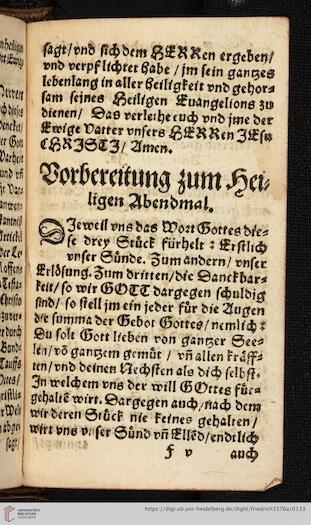 sagt/ vnd sich dem HERRen ergeben/
vnd verpflichtet habe / jm sein gantzes
lebenlang in aller heiligkeit vnd gehor-
sam seines Heiligen Euangelions zu
dienen/ Das verleihe euch vnd jme der
Ewige Vatter vnsers HERRen JESu
CHRISTI/ Amen.
Vorbereitung zum Hei-
ligen Abendmal.
DJeweil vns das Wort Gottes die-
se drey Stück fürhelt : Erstlich
vnser Sünde. Zum andern/ vnser
Erlösung. Zum dritten/ die Danckbar-
keit/ so wir GOTT dargegen schuldig
sind/ so stell jm ein jeder für die Augen
die summa der Gebot Gottes/ nemlich:
Du solt Gott lieben von gantzer See-
len/ võ gantzem gemüt / vñ allen kräff-
ten/ vnd deinen Nechsten als dich selbst.
In welchem vns der will GOttes für-
gehaltẽ wirt. Dargegen auch/ nach dem
wir deren Stück nie keines gehalten/
wirt vns vnser Sünd vñ Ellẽd/ endtlich
f v auch
https://digi.ub.uni-heidelberg.de/diglit/friedrich1576a/0133